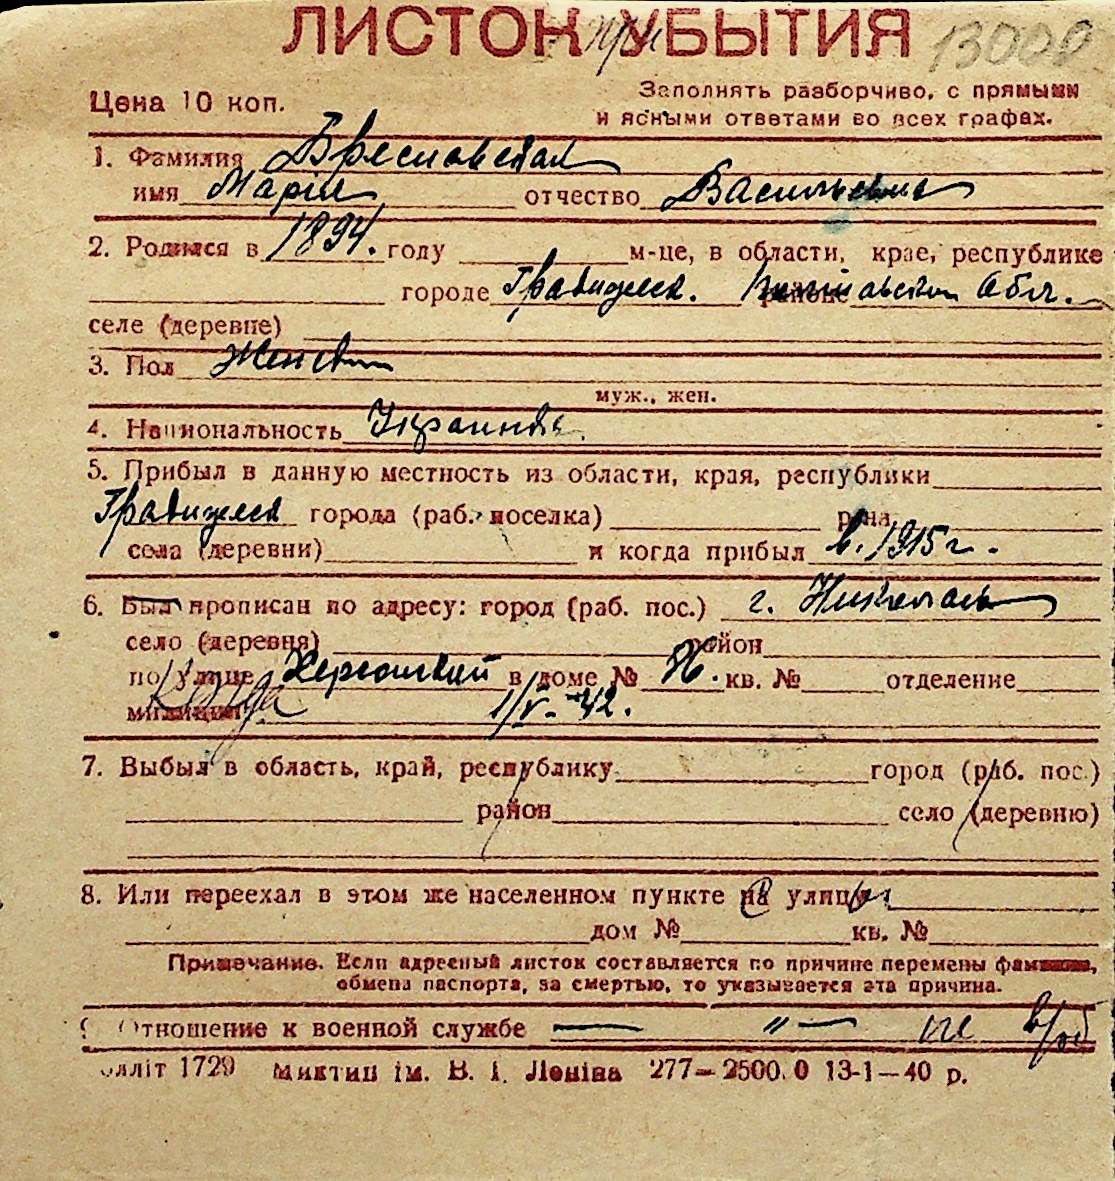 ЛИСТОК УБЫТИЯ 13000
Цена 10 коп.
Заполнять разборчиво, с прямыми
и ясными ответами во всех графах.
1. Фамилия Бресловская
имя Марія отчество Васильевна
2. Родился в 1894. году м-це, в области, крае, республике
городе Градижск. районе Обл.
селе (деревне)
3. Пол Женский
муж., жен.
4. Национальность Украинка
5. Прибыл в данную местность из области, края, республики
Градижск города (раб. поселка) р-на
села (деревни) и когда прибыл в. 1915 г.
6. Был прописан по адресу: город (раб. пос.) г. Николаев
село (деревня) район
по улице в доме № 86. кв. № отделение
милиции 1/V-42.
7. Выбыл в область, край, республику город (раб. пос.)
район село (деревню)
8. Или переехал в этом же населенном пункте на улицу
дом № кв. №
Примечание. Если адресный листок составляется по причине перемены фамилии,
обмена паспорта, за смертью, то указывается эта причина.
9. Отношение к военной службе — „ — не в/об
олліт 1729 ім. В. І. Леніна 277—2500.0 13-1—40 р.